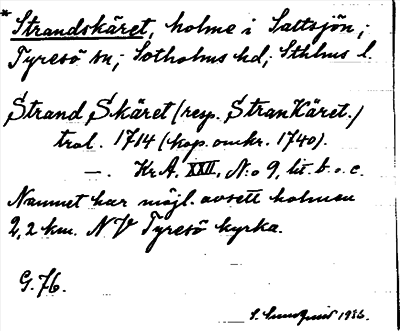 * Strandskäret, holme i Saltsjön;
Tyresö sn; Sotholms hd; Sthlms l.
Strand Skäret (resp. StranKäret.)
tral. 1714 (kop. omkr. 1740).
—. Kr A. XXII, N:o 9, lit. b o. c.
Namnet har möjl. avsett holmen
2,2 km. NV Tyresö kyrka.
G. 76.
S. Sundqvist 1936.